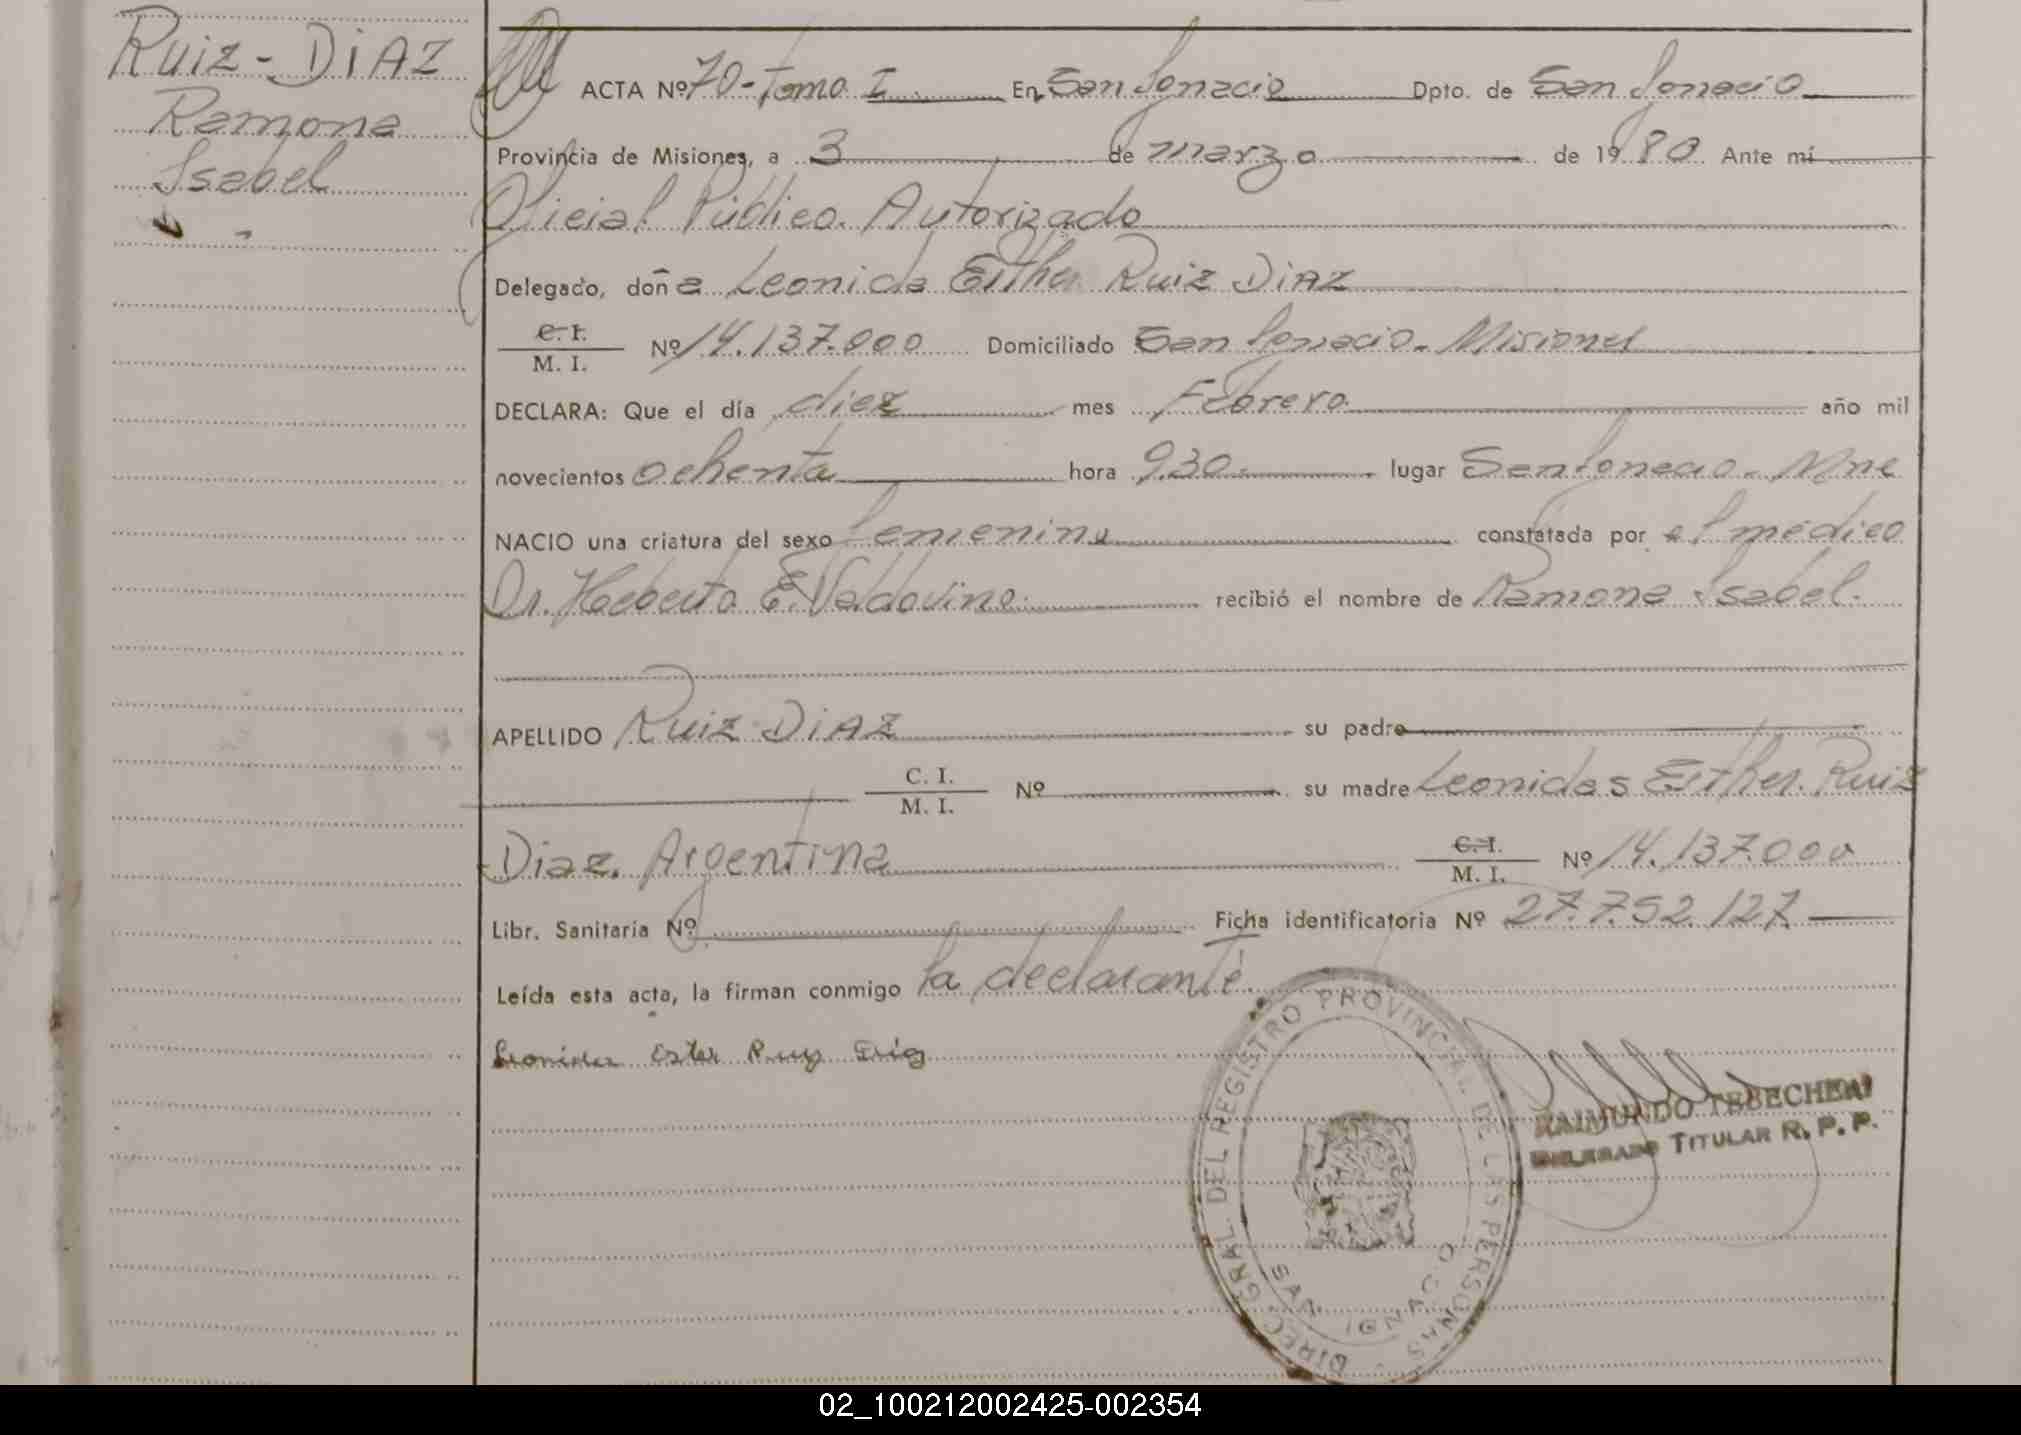 Ruiz - DiAZ
Ramona
Isabel
ACTA Nº 70 - Tomo I En San Ignacio Dpto. de San Ignacio
Provincia de Misiones, a 3 de marzo de 1980 Ante mí
Oficial Público Autorizado
Delegado, doña Leonida Esther Ruiz DiAZ
C. I.
M. I. Nº 14.137.000 Domiciliado San Ignacio - Misiones
DECLARA: Que el día diez mes Febrero año mil
novecientos ochenta hora 9.30 lugar San Ignacio - Mnes
NACIO una criatura del sexo femenino constatada por el médico
Dr. E. Valdovino recibió el nombre de Ramona Isabel
APELLIDO Ruiz DiAZ su padre
C. I.
M. I. Nº su madre Leonidas Esther Ruiz
Diaz. Argentina C. I.
M. I. Nº 14.137.000
Libr. Sanitaria Nº Ficha identificatoria Nº 27.752.127
Leída esta acta, la firman conmigo la declarante
Leonidas Ester Ruiz Diaz
DIREC. GRAL. DEL REGISTRO PROVINCIAL DE LAS PERSONAS
SAN IGNACIO
RAIMUNDO
DELEGADO TITULAR R. P. P.
02_100212002425-002354